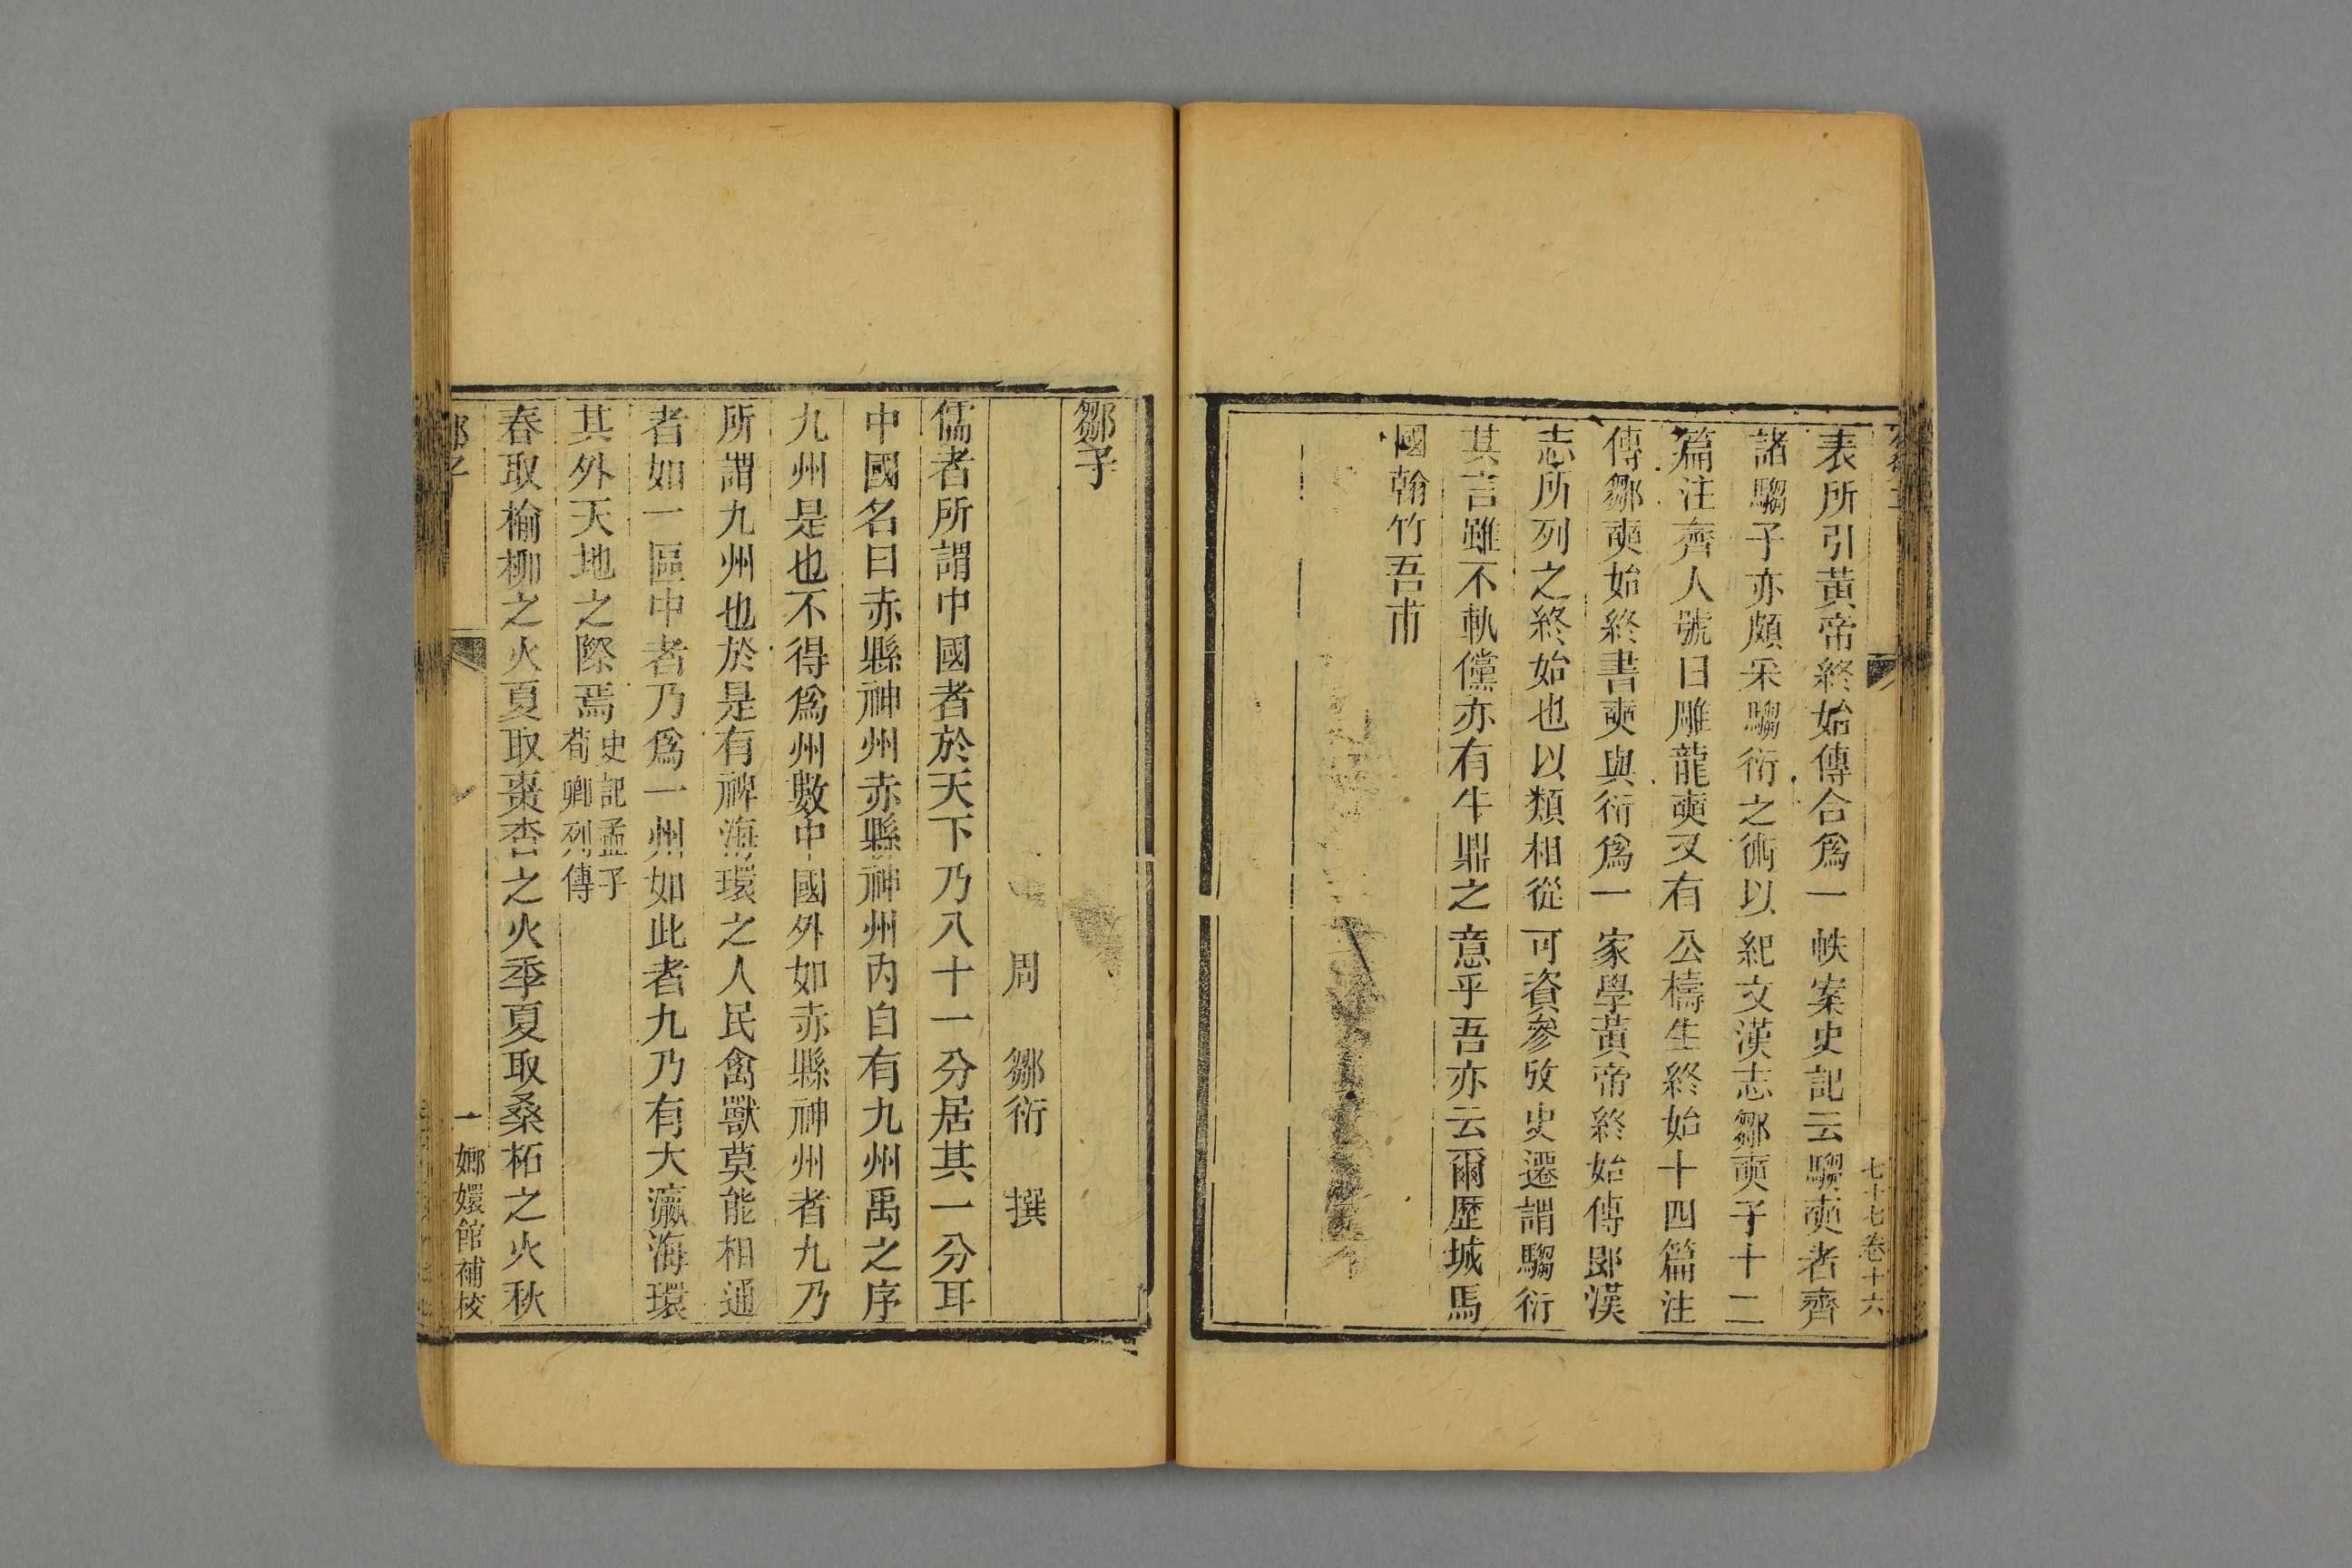 七十七卷十六
表所引黃帝終始傳合爲一帙案史記云騶奭者齊
諸騶子亦頗采騶衍之術以紀文漢志鄒奭子十二
篇注齊人號曰雕龍奭又有公檮生終始十四篇注
傳鄒奭始終書奭與衍爲一家學黃帝終始傳卽漢
志所列之終始也以類相從可資參攷史遷謂騶衍
其言雖不軌儻亦有牛鼎之意乎吾亦云爾歷城馬
國翰竹吾甫
鄒子
周 鄒衍 撰
儒者所謂中國者於天下乃八十一分居其一分耳
中國名曰赤縣神州赤縣神州內自有九州禹之序
九州是也不得爲州數中國外如赤縣神州者九乃
所謂九州也於是有裨海環之人民禽獸莫能相通
者如一區中者乃爲一州如此者九乃有大瀛海環
其外天地之際焉史記孟子荀卿列傳
春取榆柳之火夏取棗杏之火季夏取桑柘之火秋
一 嫏嬛館補校